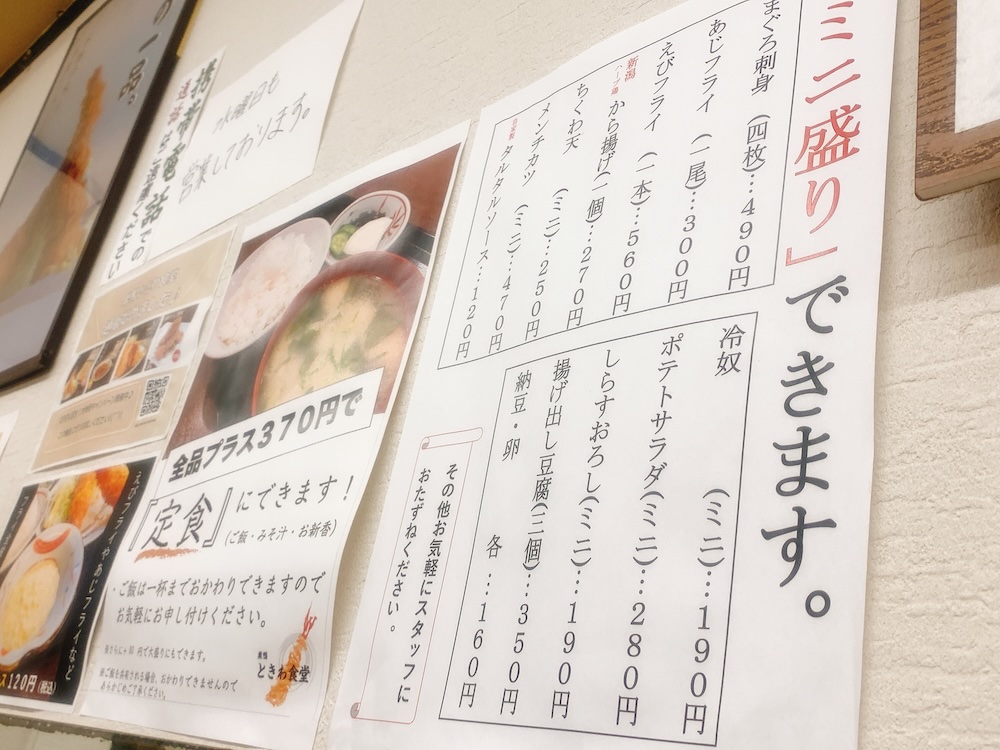 ミニ盛り」できます。
まぐろ刺身 (四枚)…490円
あじフライ (一尾)…300円
えびフライ (一本)…560円
新潟ハーブ鶏 から揚げ(一個)…270円
ちくわ天 (ミニ)…250円
メンチカツ (ミニ)…470円
自家製 タルタルソース…120円
冷奴 (ミニ)…190円
ポテトサラダ(ミニ)…280円
しらすおろし(ミニ)…190円
揚げ出し豆腐(三個)…350円
納豆・卵 各…160円
その他お気軽にスタッフに
おたずねください。
水曜日も
営業しております。
の一品。
携帯電話での
通話はご遠慮ください
全品プラス370円で
『定食』にできます!
(ご飯・みそ汁・お新香)
・ご飯は一杯までおかわりできますので
お気軽にお申し付けください。
ときわ食堂
えびフライやあじフライなど
120円(税込)